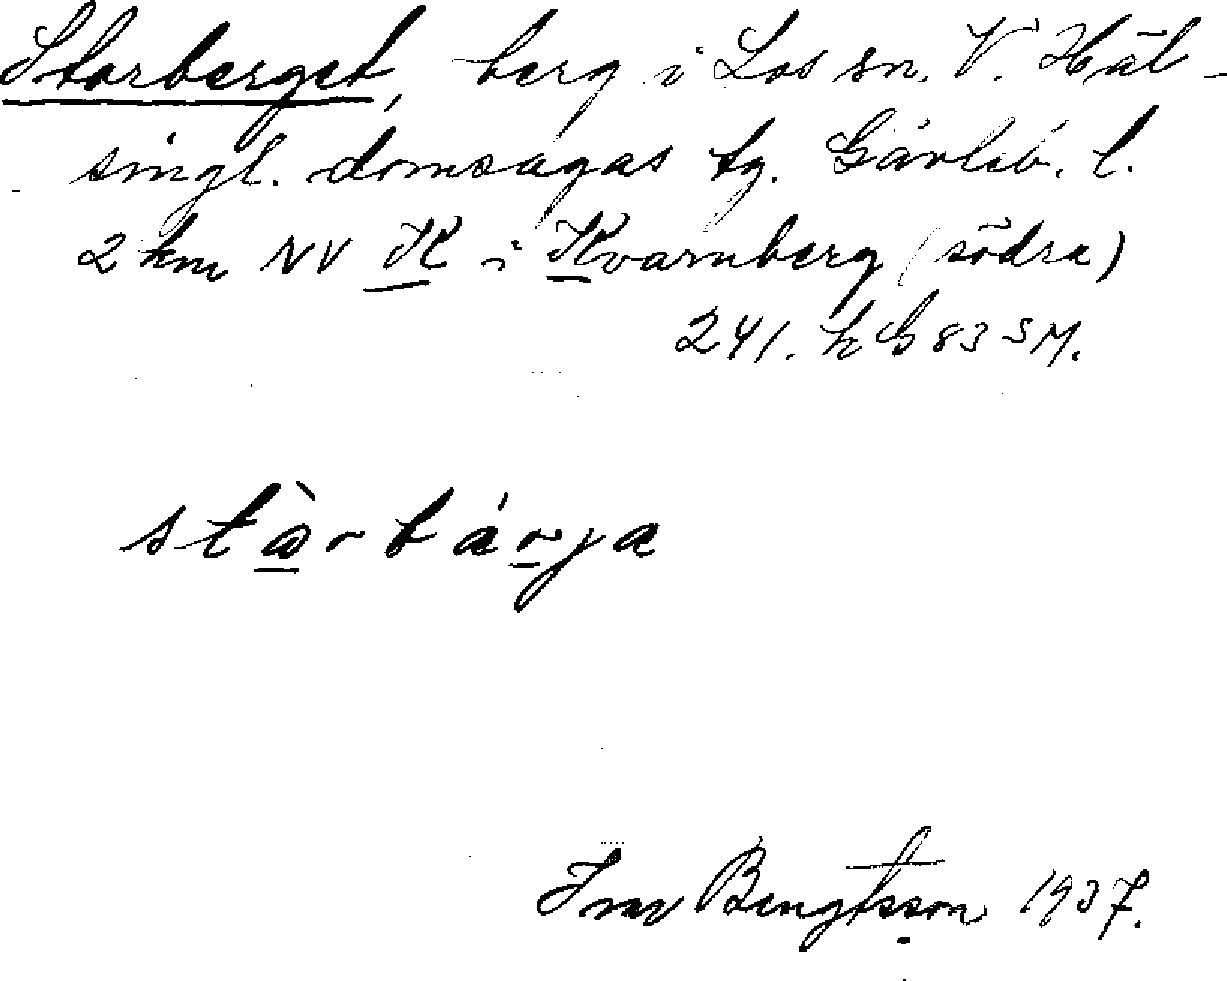 Storberget, berg i Los sn. V. Häl-
singl. domsagas tg. Gävleb. l.
2 km NV K i Kvarnberg (södra)
241. h G 83 SM.
stàrbárja
Bengtsson 1937.